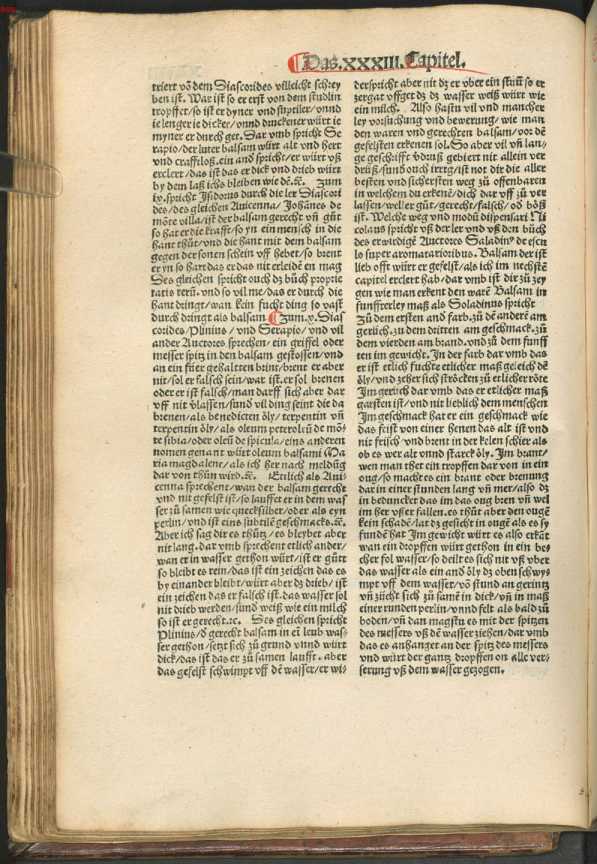 Das.XXXIII.Capitel.
triert võ dem Diascorides villeicht schrey
ben ist. War ist so er erst von dem studlin
tropffet/so ist er dyner vnd suptiler/vnnd
ie lenger ie dicker/vnnd dunckener würt ie
myner er durch get. Dar vmb spricht Se
rapio/der luter balsam würt alt vnd hert
vnd crafftloß.ein and spricht/er würt vß
erclert/das ist das er dick vnd drieb würt
by dem laß ichs bleiben wie dē.ꝛc. Zum
ix.spricht Jsidorus durch die ler Diascori
des/des gleichen Auicenna/Johānes de
mōte villa/ist der balsam gerecht vñ gůt
so hat er die krafft/so yn ein mensch in die
hant thůt/vnd die hant mit dem balsam
gegen der sonen schein vff hebet/so brent
er yn so hart das er das nit erleidē en mag
Des gleichen spricht ouch dz bůch proprie
tatis rerū.vnd so vil me/das er durch die
hant dringt/wan kein fucht ding so vast
durch dringt als balsam ¶Zum.x.Dias
corides/Plinius/ vnd Serapio/vnd vil
ander Auctores sprechen/ein griffel oder
messer spitz in den balsam gestossen/vnd
an ein füer gehalten brint/brent er aber
nit/so er falsch sein/war ist.er sol brenen
oder er ist falsch/man darff sich aber dar
vff nit vlassen/sund vil ding seint die da
brenen/als benedicten öly/terpentin vñ
terpentin öly/als oleum petroleū de mō-
te sibia/oder oleū de spicula/eins anderen
nomen genant würt oleum balsami Ma
ria magdalene/als ich her nach meldūg
dar von thůn wird.ꝛc. Etlich als Aui-
cenna sprechent/wan der balsam gerecht
vnd nit gefelst ist/so lauffet er in dem was
ser zů samen wie quecksilber/oder als eyn
perlin/vnd ist eins subtilē geschmacks.ꝛc.
Aber ich sag dir es thůtz/es bleybet aber
nit lang.dar vmb sprechent etlich ander/
wan er in wasser gethon würt/ist er gůtt
so bleibt es rein/das ist ein zeichen das es
by einander bleibt/würt aber dz drieb/ ist
ein zeichen das er falsch ist.das wasser sol
nit drieb werden/sund weiß wie ein milch
so ist er gerecht.ꝛc. Des gleichen spricht
Plinius/d̓ gerecht balsam in ei leub was-
ser gethon/setzt sich zů grund vnnd würt
dick/das ist das er zů samen laufft. aber
das gefelst schwimpt vff dē wasser/er wi-
derspricht aber nit dz er vber ein stūū so er
zergat vffget dz dz wasser weiß würt wie
ein milch. Also hastu vil vnd mancher
ley vorsůchung vnd bewerung/wie man
den waren vnd gerechten balsam/vor dē
gefelsten erkenen sol. So aber vil vñ lan-
ge geschrifft vdruß gebiert nit allein ver
drüß/sund ouch irrg/ist not dir die aller
besten vnd sichersten weg zů offenbaren
in welchem du erkenē/dich dar vff zů ver
lassen/weller gůt/gerecht/falsch/od bößß
ist. Welche weg vnd modū dispensari Ni
colaus spricht vß der ler vnd vß den bůch
des erwirdigē Auctores Saladinꝰ de escu
lo super aromatarioribus. Balsam der ist
lieb offt würt er gefelst/als ich im nechstē
capitel erclert hab/dar vmb ist dir zů zey
gen wie man erkent den warē Balsam in
fünfferley maß als Soladinus spricht
Zů dem ersten and farb.zů dē anderē am
gerüch.zu dem dritten am geschmack.zů
dem vierden am brand.vnd zů dem fünff
ten im gewicht. Jm der farb dar vmb das
er ist etlich fuchte etlicher maß geleich dē
öly/vnd zeher sich ströckēn zů etlicher röte
Jm gerüch dar vmb das er etlicher maß
garsten ist/vnd nit lieblich dem menschen
Jm geschmack hat er ein geschmack wie
das feist von einer henen das alt ist vnd
nit frisch/vnd brent in der kelen schier als
ob es wer alt vnnd starck öly. Jm brant/
wen man thet ein tropffen dar von in ein
oug/so macht es ein brant oder brenung
dar in einer stunden lang vñ mer/also dz
in beduncket das im das oug bren vñ wel
im her vß er fallen.es thůt aber den ougē
kein schadē/lat dz gesicht in ougē als es sy
fundē hat Jm gewicht würt es also erkāt
wan ein dropffen würt gethon in ein be-
cher fol wasser/so deilt es sich nit vß vber
das wasser als ein and öly dz oben schwy
mpt vff dem wasser/vō stund an gerintz
vñ zücht sich zů samē in dick/vñ in maß
einer runden perlin/vnnd felt als bald zů
boden/vñ dan magstu es mit der spitzen
des messers vß dē wasser ziehen/dar vmb
das es anhanget an der spitz des messers
vnd würt der gantz dropffen on alle ver-
serung vß dem wasser gezogen.